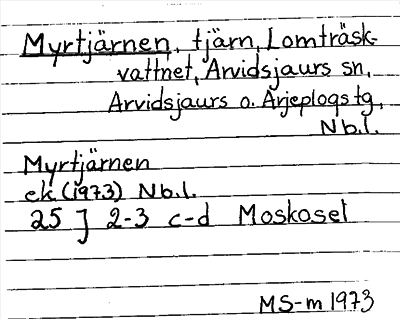 Myrtjärnen, tjärn, Lomträsk-
vattnet, Arvidsjaurs sn,
Arvidsjaurs o. Arjeplogs tg,
Nb.l.
Myrtjärnen
ek (1973) Nb.l.
25 J 2-3 c-d Moskosel
MS-m 1973